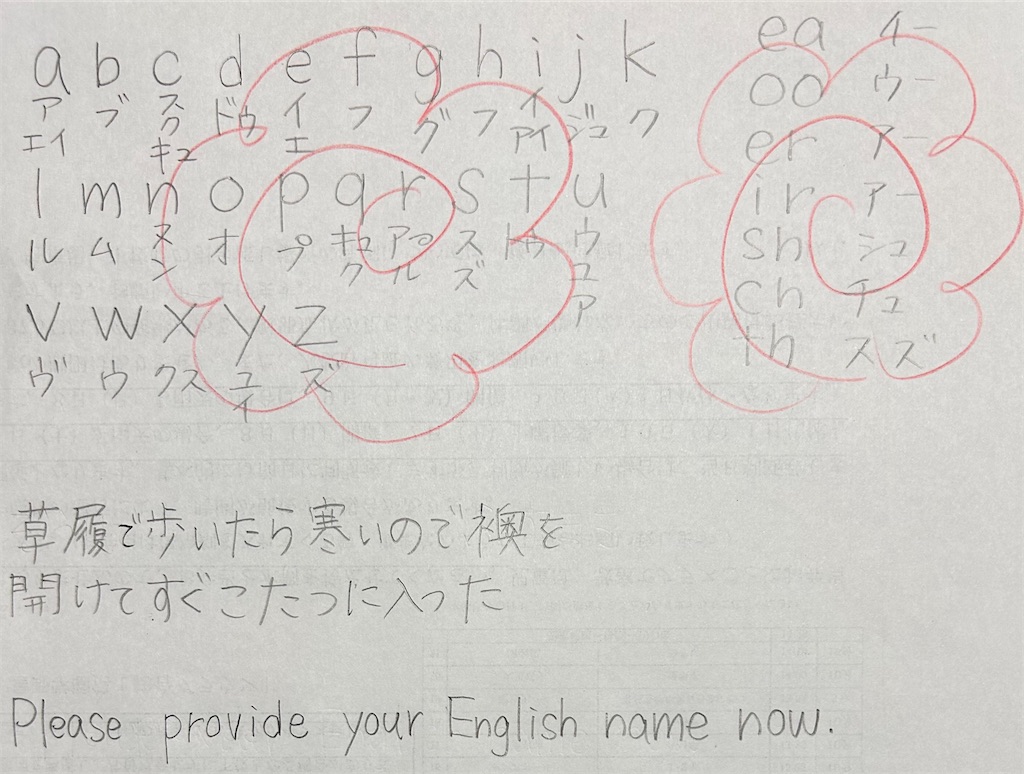 a b c d e f g h i j k
ア ブ ス ドゥ イ フ グ フ イ ジュ ク
エイ ク エ アイ
キュ
l m n o p q r s t u
ル ム ヌ オ プ キュ ア ス トゥ ウ
ン ク ル ズ ユ
ア
v w x y z
ヴ ウ クス ユ ズ
イ
ea イー
oo ウー
er アー
ir アー
sh シュ
ch チュ
th ス ズ
草履で歩いたら寒いので襖を
開けてすぐこたつに入った
Please provide your English name now.